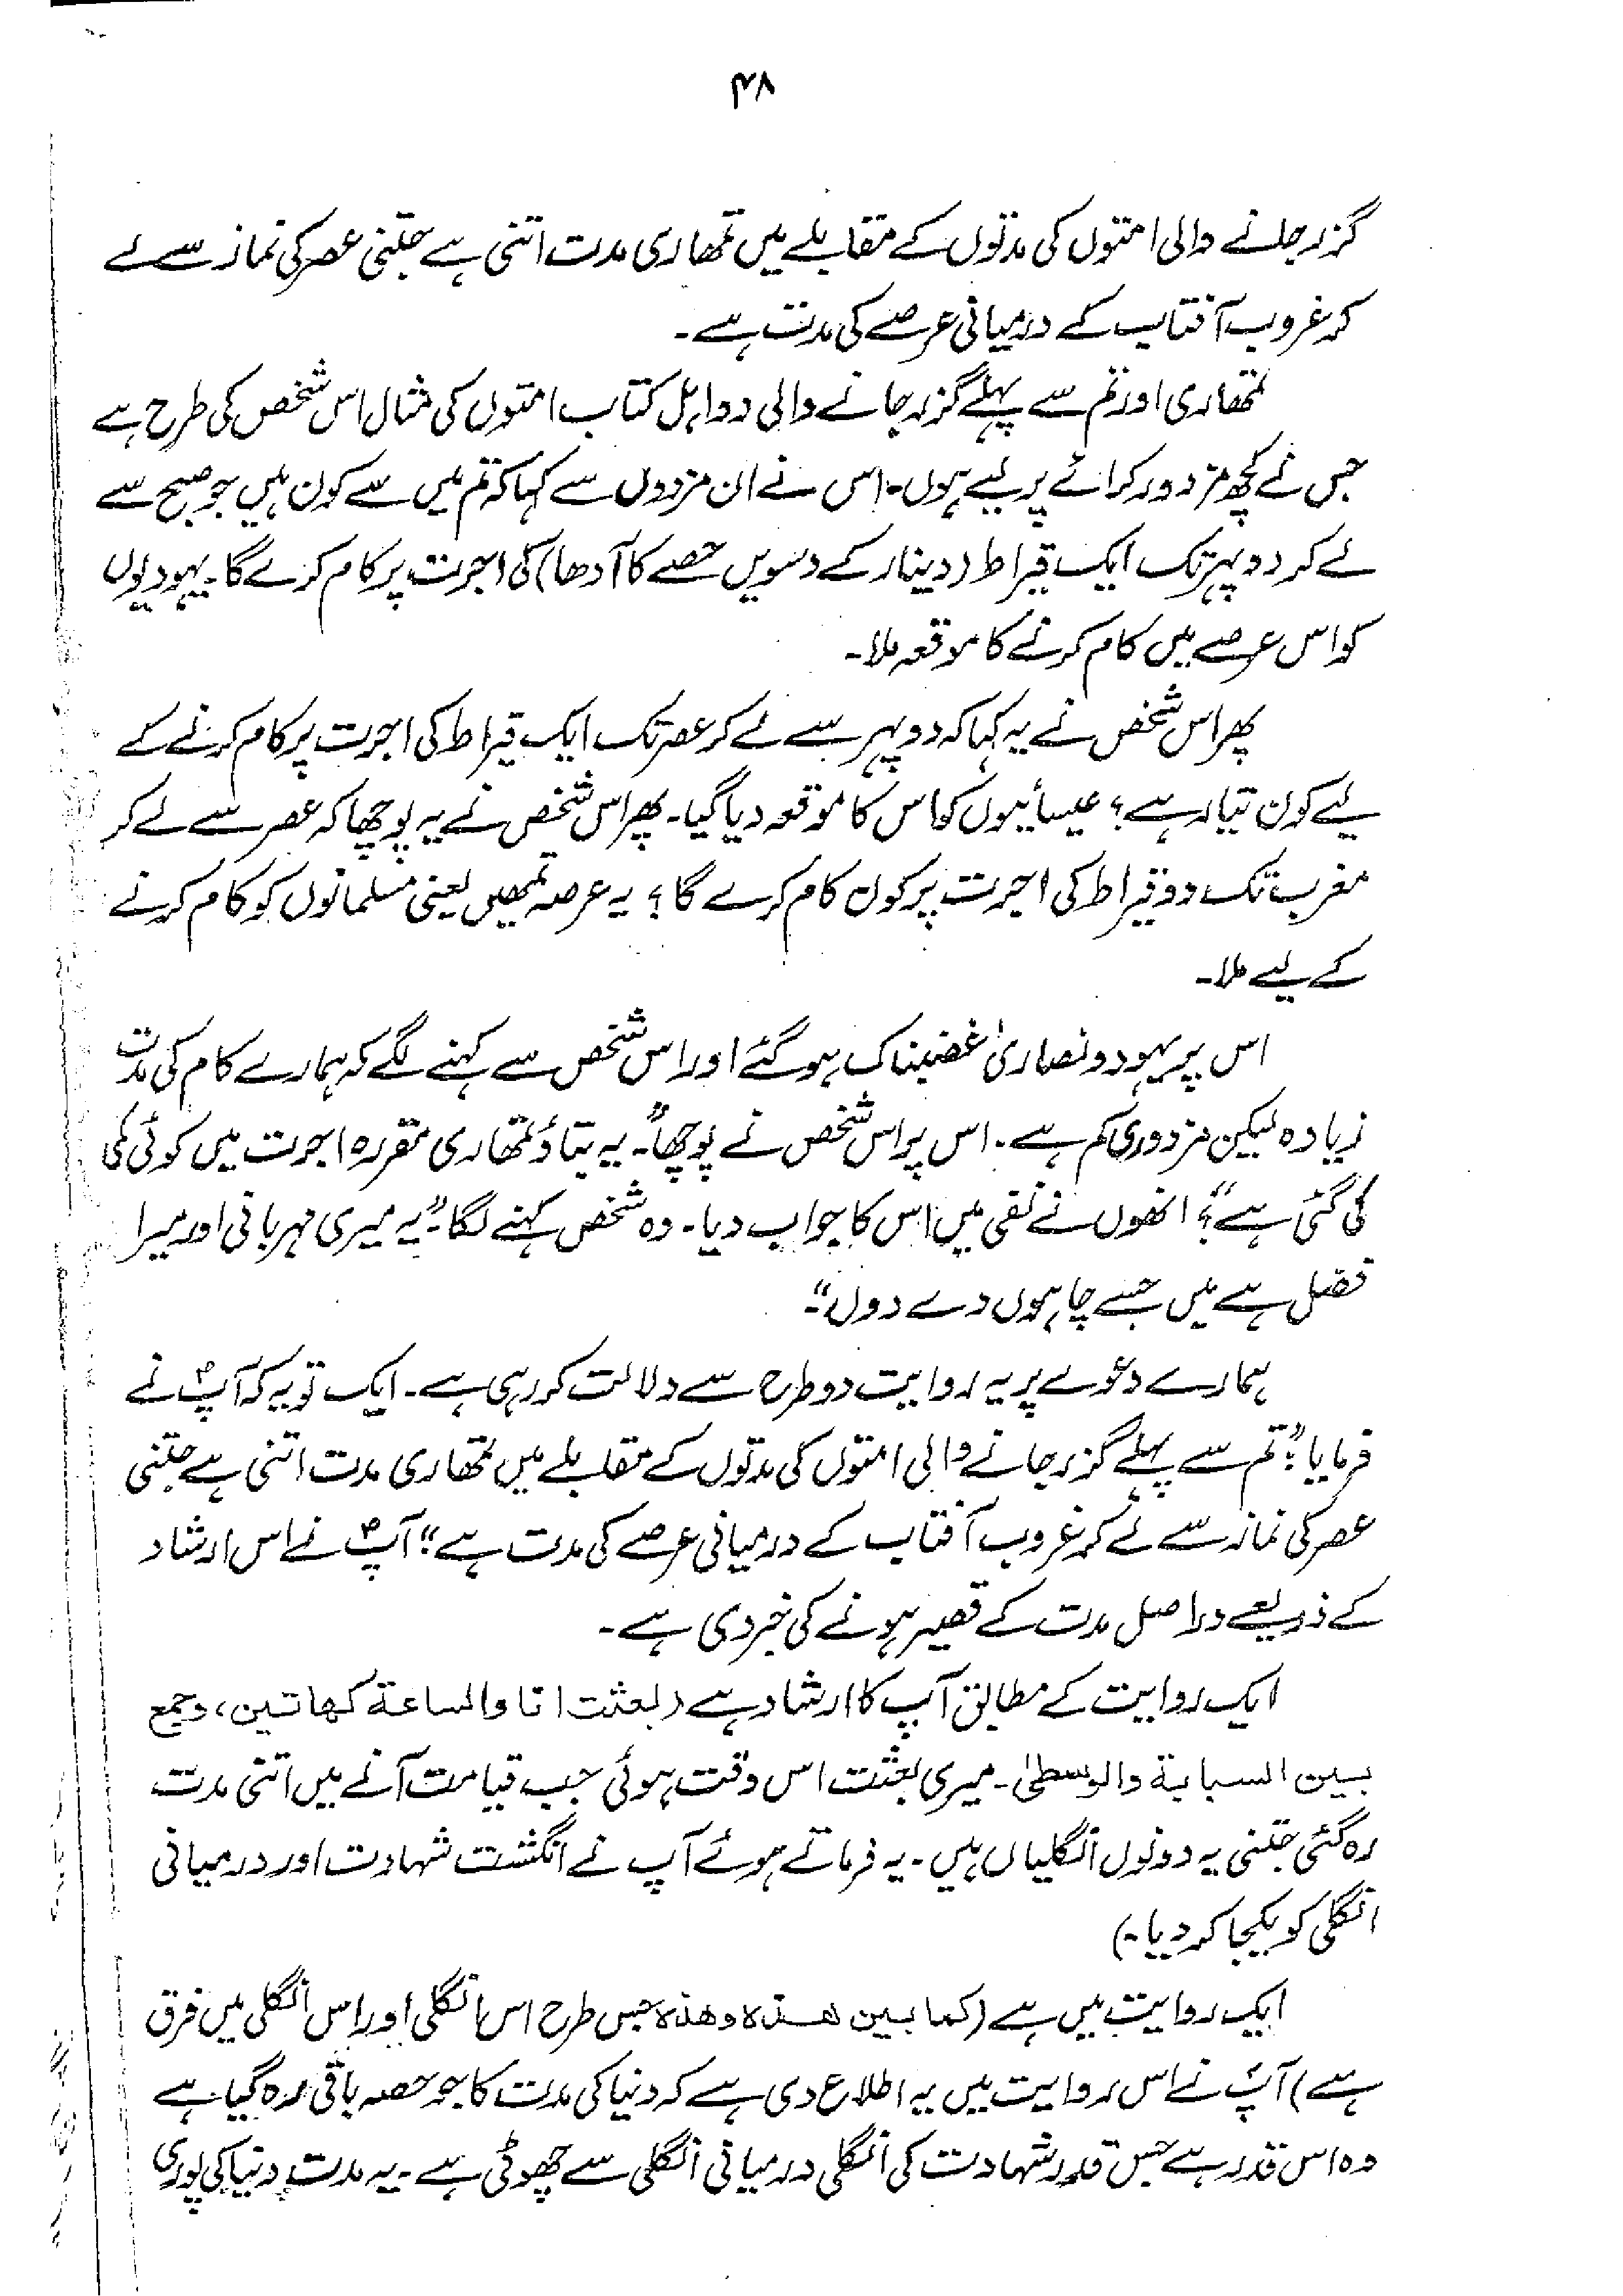 ۴۸
گزر جانے والی امتوں کی مدتوں کے مقابلے میں تمھاری مدت اتنی ہے جتنی عصر کی نماز سے لے
کر غروب آفتاب کے درمیانی عرصے کی مدت ہے۔
تمھاری اور تم سے پہلے گزر جانے والی دو اہل کتاب امتوں کی مثال اس شخص کی طرح ہے
جس نے کچھ مزدور کرائے پر لیے ہوں۔ اس نے ان مزدوں سے کہا کہ تم میں سے کون ہیں جو صبح سے
لے کر دوپہر تک ایک قیراط (دینار کے دسویں حصے کا آدھا) کی اجرت پر کام کرے گا۔ یہودیوں
کو اس عرصے میں کام کرنے کا موقعہ ملا۔
پھر اس شخص نے یہ کہا کہ دوپہر سے لے کر عصر تک ایک قیراط کی اجرت پر کام کرنے کے
لیے کون تیار ہے؟ عیسائیوں کو اس کا موقعہ دیا گیا۔ پھر اس شخص نے یہ پوچھا کہ عصر سے لے کر
مغرب تک دو قیراط کی اجرت پر کون کام کرے گا؟ یہ عرصہ تمھیں یعنی مسلمانوں کو کام کرنے
کے لیے ملا۔
اس پر یہود و نصاریٰ غضبناک ہو گئے اور اس شخص سے کہنے لگے کہ ہمارے کام کی مدت
زیادہ لیکن مزدوری کم ہے۔ اس پر اس شخص نے پوچھا۔ "یہ بتاؤ تمھاری مقررہ اجرت میں کوئی کمی
کی گئی ہے"؟ انھوں نے نفی میں اس کا جواب دیا۔ وہ شخص کہنے لگا۔ "یہ میری مہربانی اور میرا
فضل ہے میں جسے چاہوں دے دوں"۔
ہمارے دعوے پر یہ روایت دو طرح سے دلالت کر رہی ہے۔ ایک تو یہ کہ آپؐ نے
فرمایا: "تم سے پہلے گزر جانے والی امتوں کی مدتوں کے مقابلے میں تمھاری مدت اتنی ہے جتنی
عصر کی نماز سے لے کر غروب آفتاب کے درمیانی عرصے کی مدت ہے" آپؐ نے اس ارشاد
کے ذریعے دراصل مدت کے قصیر ہونے کی خبر دی ہے۔
ایک روایت کے مطابق آپ کا ارشاد ہے (بعثت انا والساعة کھاتین، وجمع
بین السبابة والوسطیٰ۔ میری بعثت اس وقت ہوئی جب قیامت آنے میں اتنی مدت
رہ گئی جتنی یہ دونوں انگلیاں ہیں۔ یہ فرماتے ہوئے آپ نے انگشت شہادت اور درمیانی
انگلی کو یکجا کر دیا۔)
ایک روایت میں ہے (کما بین ھذہ وھذہ جس طرح اس انگلی اور اس انگلی میں فرق
ہے) آپؐ نے اس روایت میں یہ اطلاع دی ہے کہ دنیا کی مدت کا جو حصہ باقی رہ گیا ہے
وہ اس قدر ہے جس قدر شہادت کی انگلی درمیانی انگلی سے چھوٹی ہے۔ یہ مدت دنیا کی پوری